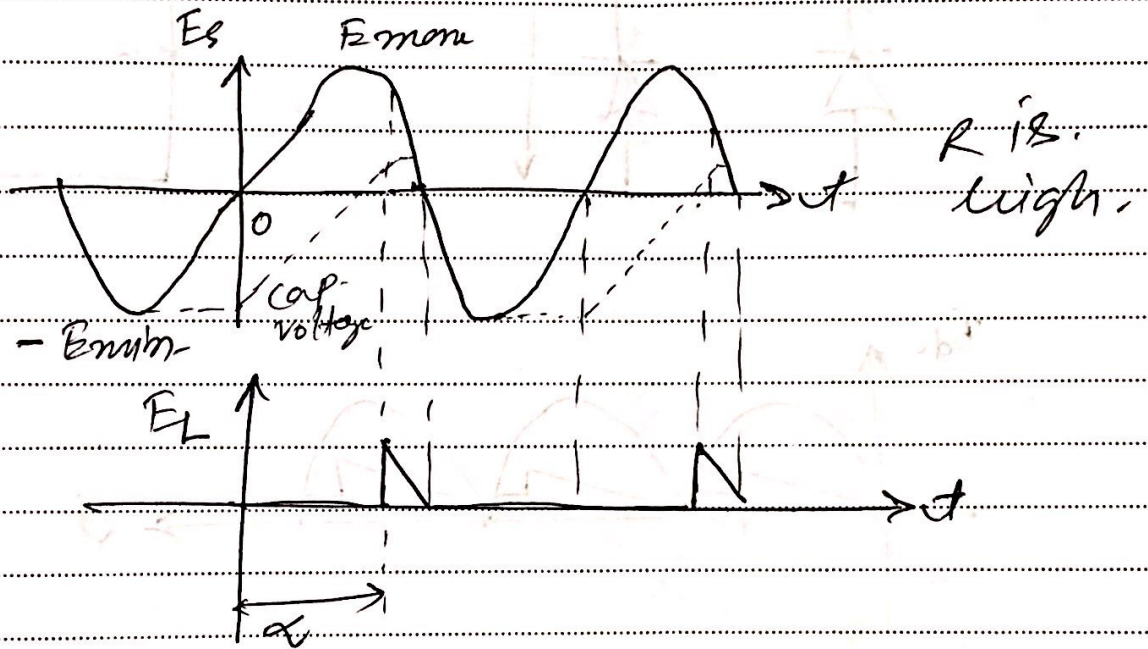 Es
Emax
R is.
high.
t
0
Cap.
voltage
- Emin
EL
t
α